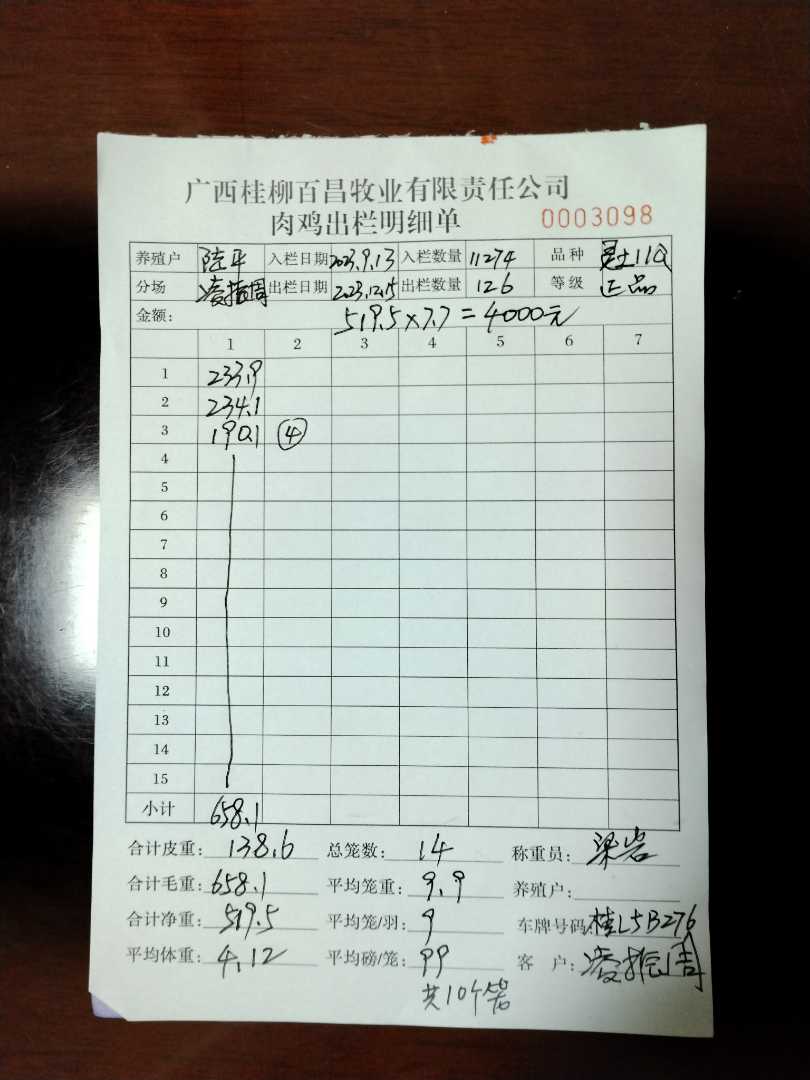 广西桂柳百昌牧业有限责任公司
肉鸡出栏明细单 0003098
养殖户 陆平 入栏日期 2023.9.13 入栏数量 11274 品种
分场 凌振周 出栏日期 2023.12.15 出栏数量 126 等级 正品
金额: 519.5×7.7=4000元
1 2 3 4 5 6 7
1 233.9
2 234.1
3 190.1 ④
4
5
6
7
8
9
10
11
12
13
14
15
小计 658.1
合计皮重: 138.6 总笼数: 14 称重员: 梁岩
合计毛重: 658.1 平均笼重: 9.9 养殖户:
合计净重: 519.5 平均笼/羽: 9 车牌号码: 桂L5B276
平均体重: 4.12 平均磅/笼: 99 客户: 凌振周
共10个